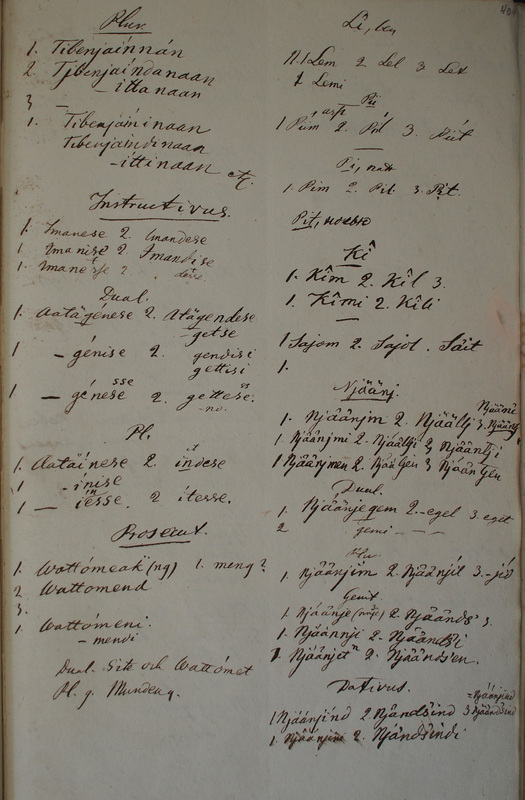 Plur.
1. Tibenjáinnán
2. Tjbenjáindanaan
- ittanaan
3 -
1. Tibenjáminaan
Tibenjáindinaan
- ittinaan etc.
Instructivus.
1. Imanese 2. Imandese
1. Imanise 2. Imandise
1. Imanesse 2.
Dual.
1. Aatägénese 2. Atägendese
getse
1 - génise 2. gendisi
gettisi
1 - génesse 2. gettesse.
Pl.
1. Aatäinese 2. indese
1 - inise
1 - inesse. 2 itesse.
Prosecut.
1. Wattómeak (ng) 1. meng?
2. Wattomend
3.
1. Wattómeni.
- mendi
Dual. Gite och Wattómet
Pl. g. Munden g.
Lî,
1. Lem 2 Lel 3 Let
1 Lemi
Pii
1 Piim 2. Piil 3. Piit
Pi,
1. Pim 2. Pil. 3. Pit.
Pit, ночью
Kî
1. Kîm 2. Kîl 3.
1. Kîmi 2. Kîli
1 Sajom 2. Sajol. Säit
1.
Njäänj.
Njääni
1. Njäänjm 2. Njäällj 3. Njäändj
1 Njäänjmi 2. Njäällji 3 Njääntji
1 Njäänjmen 2. Njääljen 3 Njääntjen
Dual.
1. Njäänjegem 2. -egel 3. eget
2 gemi - - -
Plur.
1. Njäänjim 2. Njäänjil 3. -jid
Genit.
1 Njäänje 2. Njäänds' 3.
1. Njäännji 2. Njäändsi
1. Njäänjen 2. Njäändsen.
Dativus.
- Njäänjind
1 Njáánjind 2 Njändsind 3 Njäändsind
1. Njäänjini 2. Njändsindi